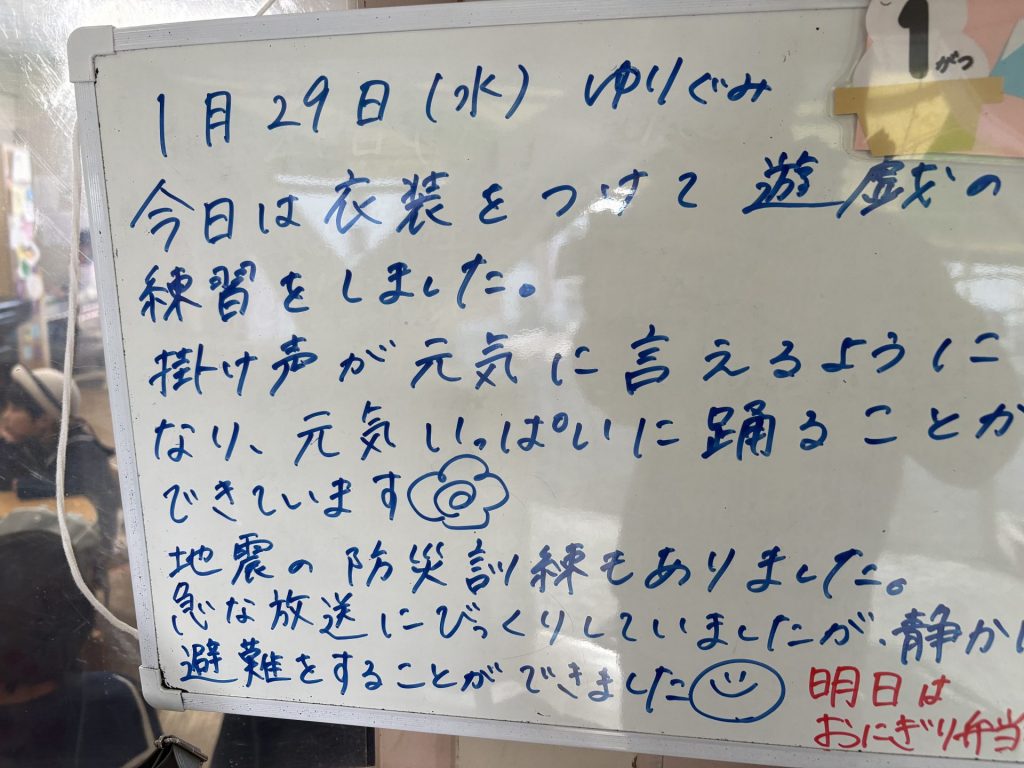 1がつ
1月29日(水) ゆりぐみ
今日は衣装をつけて遊戯の
練習をしました。
掛け声が元気に言えるように
なり、元気いっぱいに踊ることが
できています
地震の防災訓練もありました。
急な放送にびっくりしていましたが、静かに
避難をすることができました
明日は
おにぎり弁当